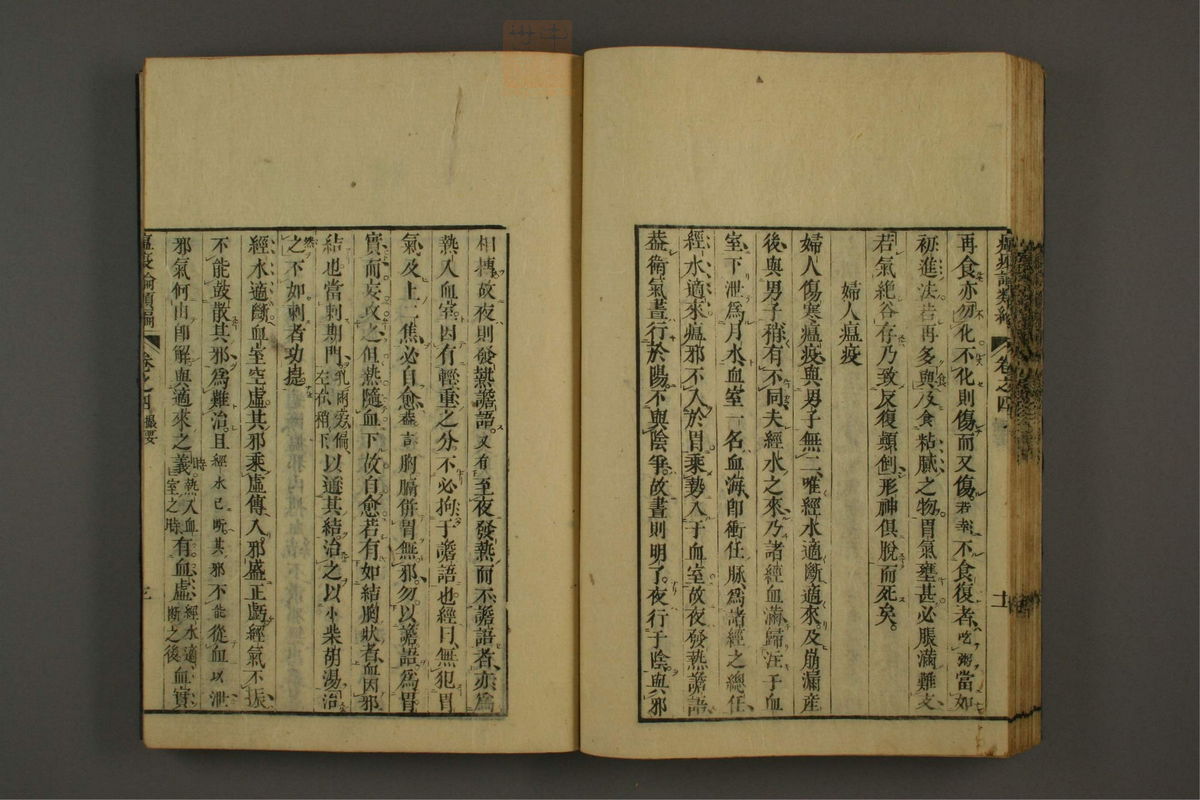 再食亦勿化不化則傷而又傷若報不食復者吃粥當如
初進法若再多與食及食粘膩之物胃氣壅甚必脹滿難支
若氣絶谷存乃致反復顛倒形神俱脫而死矣
婦人瘟疫
婦人傷寒瘟疫與男子無二唯經水適斷適來及崩漏産
後與男子稍有不同夫經水之來乃諸經血滿歸注于血
室下泄爲月水血室一名血海即衝任脉爲諸經之總任
經水適來瘟邪不入於胃乘勢入于血室故夜發熱譫語
葢衛氣晝行於陽不與陰爭故晝則明了夜行于陰與邪
相摶故夜則發熱譫語又有至夜發熱而不譫語者亦爲
熱入血室因有輕重之分不必拘于譫語也經曰無犯胃
氣及上二焦必自愈葢言胸膈併胃無邪勿以譫語爲胃
實而妄攻之但熱隨血下故自愈若有如結胸狀者血因邪
結也當刺期門乳兩旁偏左右稍下以通其結治之以小柴胡湯治
之不如刺者功捷
經水適斷血室空虛其邪乘虛傳入邪盛正虧經氣不振
不能鼓散其邪爲難治且經水已斷其邪不能從血以泄
邪氣何由即解與適來之義熱入血室之時有血虛經水適斷之後血實
瘟疫論類編 卷之四 撮要